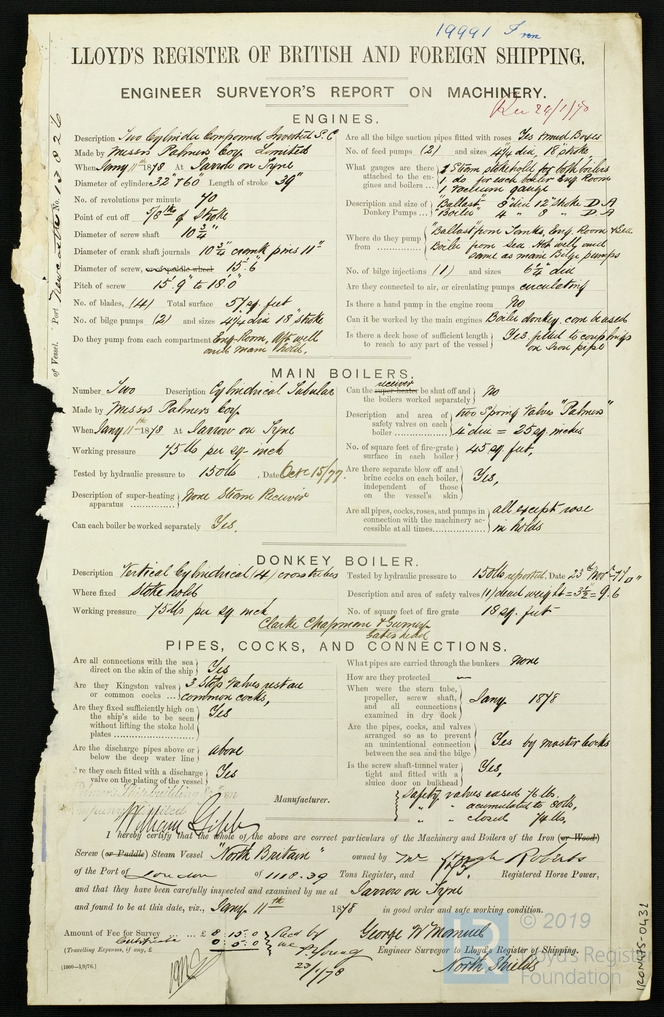 19991 Iron
LLOYD'S REGISTER OF BRITISH AND FOREIGN SHIPPING.
ENGINEER SURVEYOR'S REPORT ON MACHINERY.
ENGINES.
Description Two Cylinder Compound Inverted S.C.
Made by Messrs Palmers Coy Limited
When Jany 11th 1878 At Jarrow on Tyne
Diameter of cylinder 32" & 60" Length of stroke 39"
No. of revolutions per minute 70
Point of cut off 5/8ths of Stroke
Diameter of screw shaft 10 3/4"
Diameter of crank shaft journals 10 3/4" crank pins 11"
Diameter of screw, or of paddle wheel 15.6"
Pitch of screw 15.9" to 18.0"
No. of blades, (4) Total surface 57 sq. feet
No. of bilge pumps (2) and sizes 4 1/4 dia 18" stroke
Do they pump from each compartment Eng. Room, Aft well and main hold.
Are all the bilge suction pipes fitted with roses Yes & mud Boxes
No. of feed pumps (2) and sizes 4 1/4 dia, 18" stroke
What gauges are there attached to the engines and boilers
2 Steam stokehold for both boilers
1 do for each boiler Eng Room
1 Vacuum gauge
Description and size of Donkey Pumps
"Ballast" 8" dia 12" stroke D A
"Boiler" 4" " 8" " D A
Where do they pump from
"Ballast" from Tanks, Eng. Room & Sea
Boiler from Sea, Hot well and
same as main Bilge pumps
No. of bilge injections (1) and sizes 6 1/2" dia
Are they connected to air, or circulating pumps circulating
Is there a hand pump in the engine room No
Can it be worked by the main engines Boiler donkey, can be used
Is there a deck hose of sufficient length to reach to any part of the vessel Yes, fitted to couplings on Iron pipe
Port of Newcastle No. 13826
of Vessel.
MAIN BOILERS.
Number Two Description Cylindrical Tubular
Made by Messrs Palmers Coy.
When Jany 11th 1878 At Jarrow on Tyne
Working pressure 75 lbs per sq. inch
Tested by hydraulic pressure to 150 lbs, Date Oct 15/77.
Description of super-heating apparatus None Steam Reciever
Can each boiler be worked separately Yes
Can the super-heater reciever be shut off and the boilers worked separately No
Description and area of safety valves on each boiler
two Spring Valves "Palmers"
4" dia = 25 sq. inches
No. of square feet of fire-grate surface in each boiler 45 sq. feet.
Are there separate blow off and brine cocks on each boiler, independent of those on the vessel's skin Yes,
Are all pipes, cocks, roses, and pumps in connection with the machinery accessible at all times all except rose in holds
DONKEY BOILER.
Description Vertical Cylindrical (4) cross tubes
Where fixed Stoke hold
Working pressure 75 lbs per sq inch
Tested by hydraulic pressure to 150 lbs reported. Date 23rd Nov 77
Description and area of safety valves (1) dead weight = 3 1/2 = 9.6
No. of square feet of fire grate 18 sq. feet
Clarke Chapman & Gurney
Gateshead
PIPES, COCKS, AND CONNECTIONS.
Are all connections with the sea direct on the skin of the ship Yes
Are they Kingston valves or common cocks 3 Stop Valves, rest are common cocks,
Are they fixed sufficiently high on the ship's side to be seen without lifting the stoke hold plates Yes
Are the discharge pipes above or below the deep water line above
Are they each fitted with a discharge valve on the plating of the vessel Yes
What pipes are carried through the bunkers None
How are they protected —
When were the stern tube, propeller, screw shaft, and all connections examined in dry dock Jany 1878
Are the pipes, cocks, and valves arranged so as to prevent an unintentional connection between the sea and the bilge Yes by master Cocks
Is the screw shaft-tunnel water tight and fitted with a sluice door on bulkhead Yes,
Manufacturer.
Safety valves eased 76 lbs.
" " accumulated to 80 lbs,
" " closed 74 lbs,
I hereby certify that the whole of the above are correct particulars of the Machinery and Boilers of the Iron (or Wood)
Screw (or Paddle) Steam Vessel "North Britain" owned by Mr Hugh Roberts
of the Port of London of 1118.39 Tons Register, and Registered Horse Power,
and that they have been carefully inspected and examined by me at Jarrow on Tyne
and found to be at this date, viz., Jany 11th 1878 in good order and safe working condition.
Amount of Fee for Survey £ 8:15:0 Recd by me
Certificate 0:5:0 P. Young
(Travelling Expenses, if any, £ 23/1/78
George W Manuel
Engineer Surveyor to Lloyd's Register of Shipping.
North Shields
© 2019
Lloyd's Register
Foundation
IRONREPS-0432